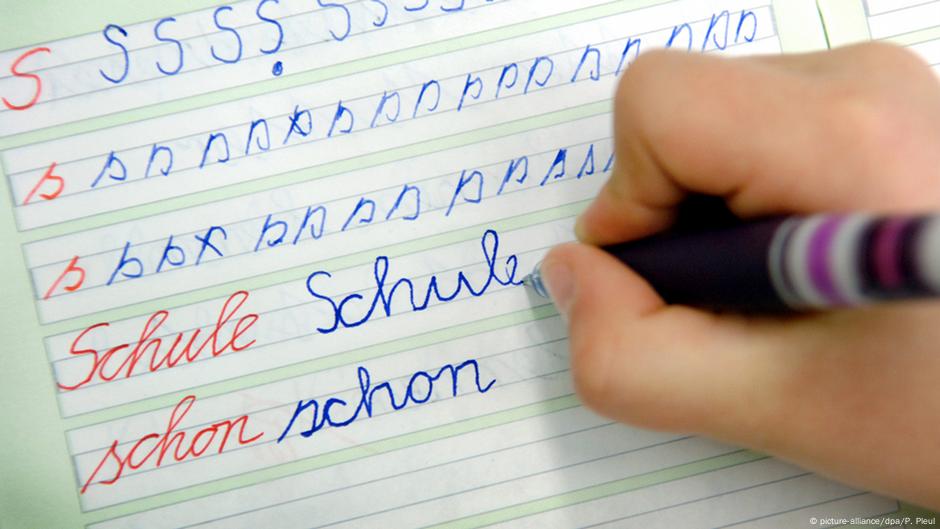 S S S S S
s s s s s s s s s s s s s s s s
s s s s s s s s s s s s
Schule Schule
schon schon
© picture-alliance/dpa/P. Pleul